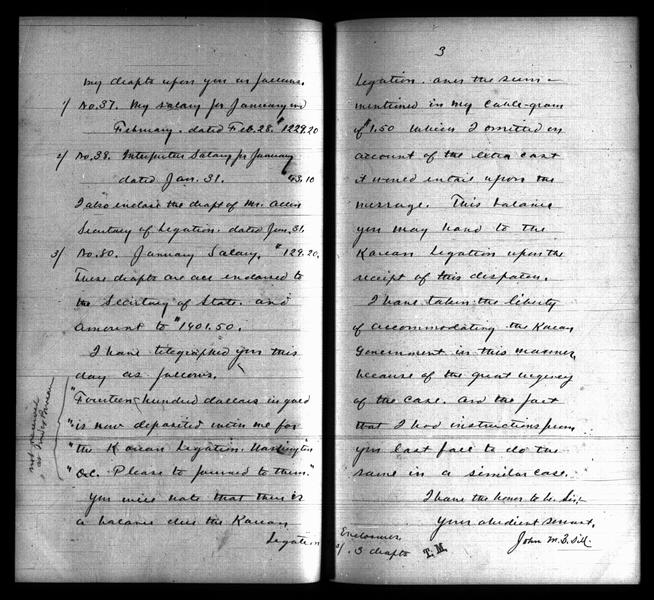 my drafts upon you as follows.
1/ No. 37. My salary for January and
February. dated Feb. 28. $1229.20
2/ No. 38. Interpreter Salary for January
dated Jan. 31. $43.10
I also enclose the draft of Mr. Allen
Secretary of Legation. dated Jan. 31.
3/ No. 80. January Salary. $129.20.
These drafts are all endorsed to
the Secretary of State. and
amount to $1401.50.
I have telegraphed you this
day as follows.
"Fourteen hundred dollars in gold
"is now deposited with me for
"the Korean Legation, Washington
"D.C. Please to forward to them."
You will note that there is
a balance due the Korean
Legation
not received
3
Legation. over the sum
mentioned in my Cable-gram
of $1.50 which I omitted on
account of the extra cost
it would entail upon the
message. This balance
you may hand to the
Korean Legation upon the
receipt of this despatch.
I have taken the liberty
of accommodating the Korean
Government in this manner,
because of the great urgency
of the case. and the fact
that I had instructions from
you last fall to do the
same in a similar case.
I have the honor to be. Sir,
Your obedient servant,
John M. B. Sill.
Enclosures,
3 drafts T.M.